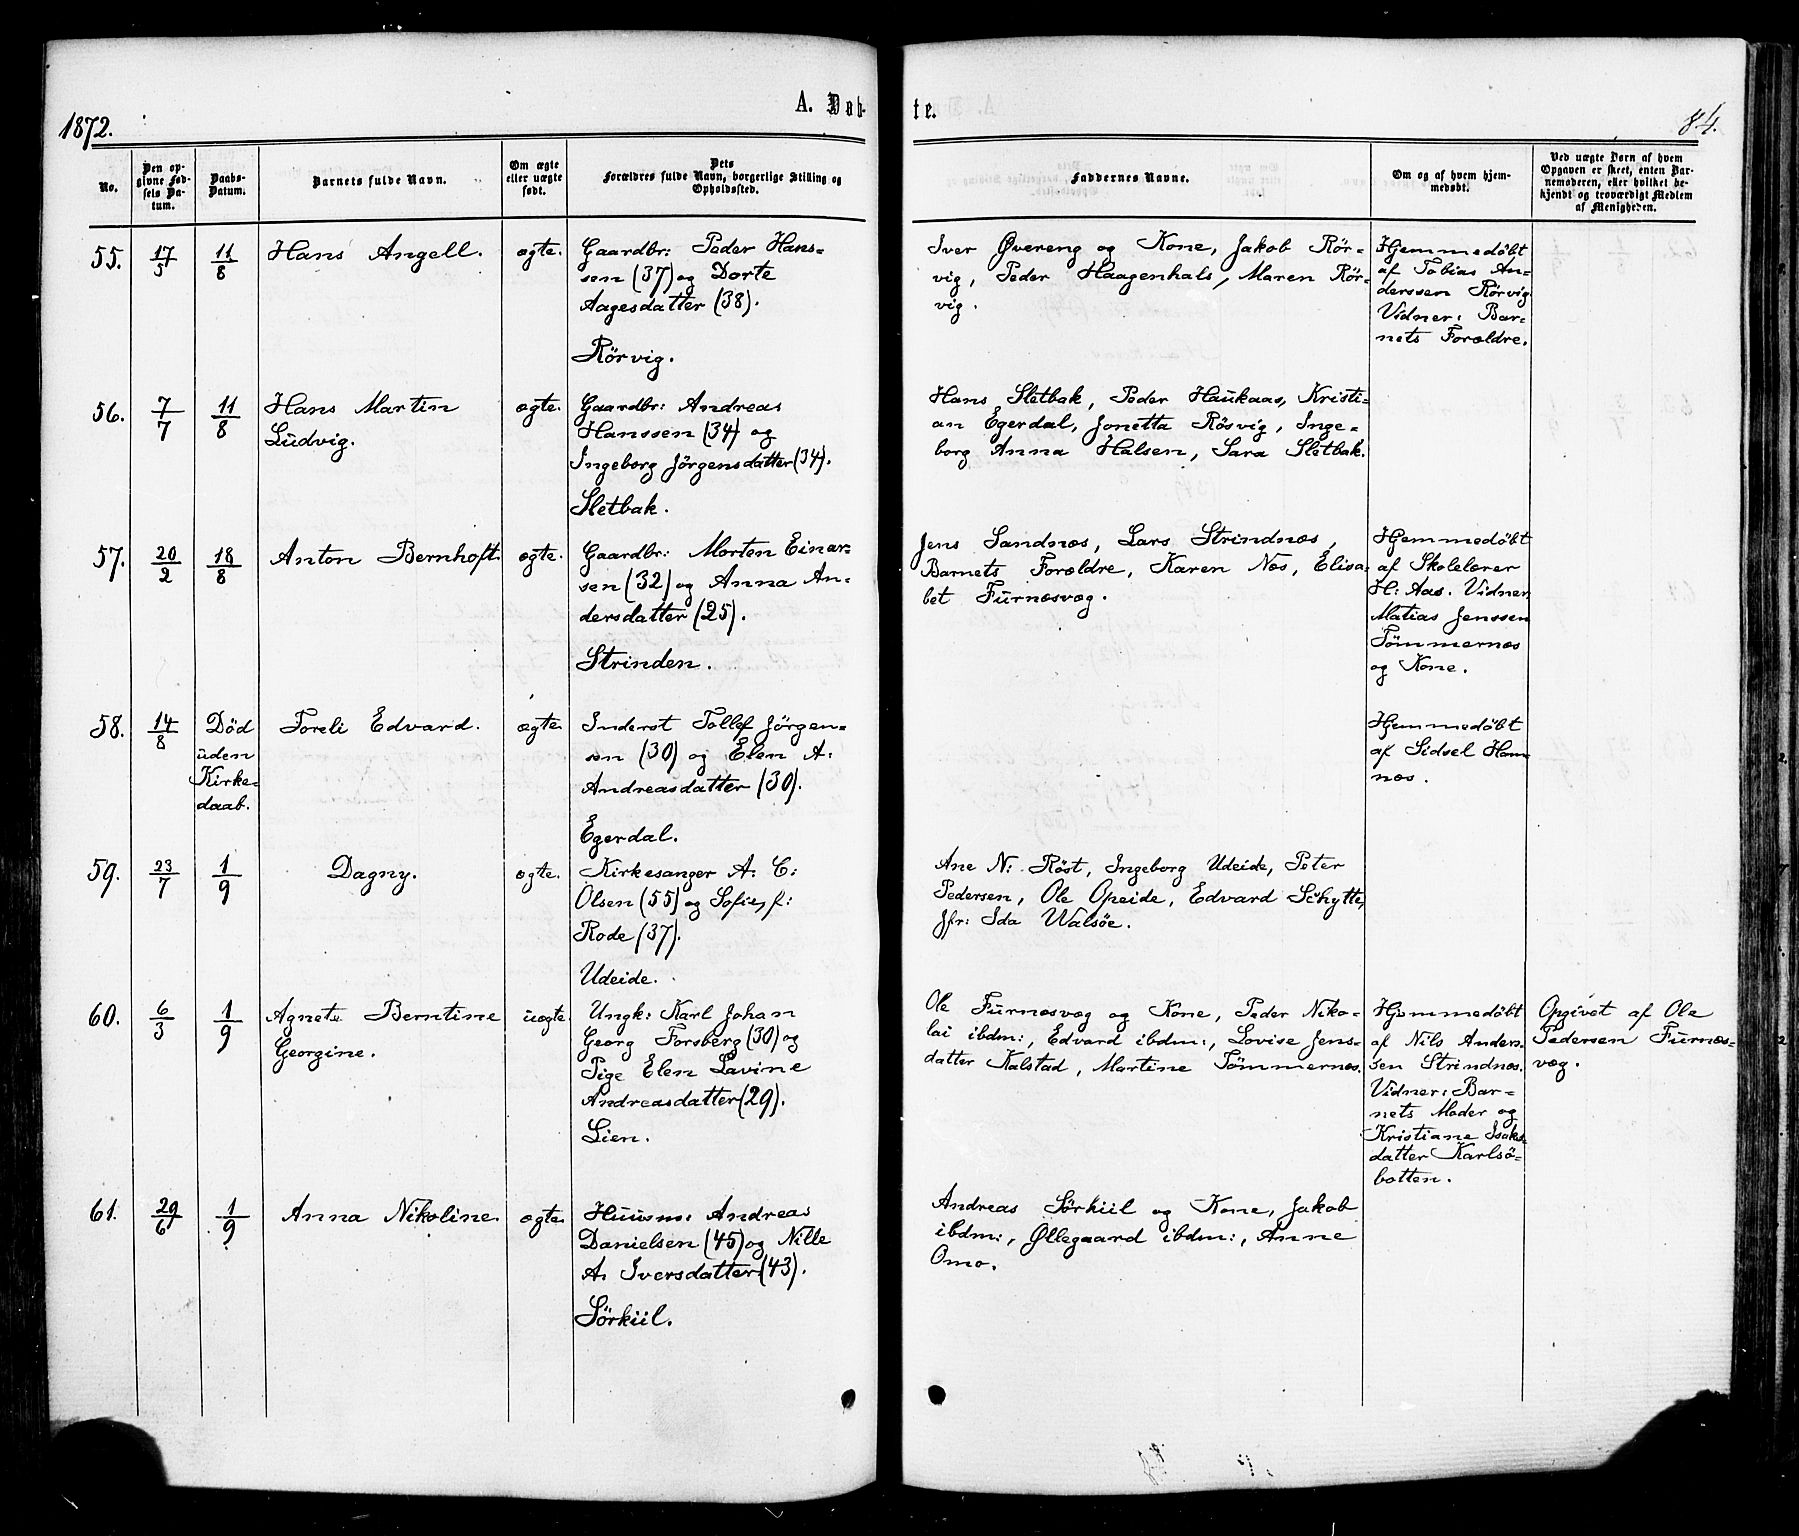 1872.
A. Døb-
te.
84.
No.
Den op-
givne Fød-
sels Da-
tum.
Daabs-
Datum.
Barnets fulde Navn.
Om ægte
eller uægte
født.
Dets
Forældres fulde Navn, borgerlige Stilling og
Opholdssted.
Faddernes Navne.
Om og af hvem hjem-
medøbt.
Ved uægte Børn af hvem
Opgaven er skeet, enten Bar-
nemoderen, eller hvilket be-
kjendt og troværdigt Medlem
af Menigheden.
55.
17/5
11/8
Hans Angell.
ægte.
Gaardbr: Peder Hans-
sen (37) og Dorte
Aagesdatter (38).
Rörvig.
Iver Øvereng og Kone, Jakob Rör-
vig, Peder Haagenhals, Maren Rör-
vig.
Hjemmedøbt
af Tobias An-
derssen Rörvig
Vidner: Bar-
nets Forældre.
56.
7/7
11/8
Hans Martin
Ludvig.
ægte.
Gaardbr: Andreas
Hanssen (34) og
Ingeborg Jörgensdatter (34).
Sletbak.
Hans Sletbak, Peder Haukaas, Kristi-
an Egerdal, Jonetta Rösvig, Inge-
borg Anna Halsen, Sara Sletbak.
57.
20/2
18/8
Anton Bernhoft.
ægte.
Gaardbr: Morten Einar-
sen (32) og Anna An-
dersdatter (25).
Strinden.
Jens Sandnæs, Lars Strindnæs,
Barnets Forældre, Karen Næs, Elisa-
bet Furnæsvæg.
Hjemmedøbt
af Skolelærer
H: Aas. Vidner
Matias Jenssen
Tömmernæs
og Kone.
58.
14/8
Död
uden
Kirke-
daab.
Toreli Edvard.
ægte.
Inderst Tollef Jörgen-
sen (30) og Elen A:
Andreasdatter (30).
Egerdal.
Hjemmedøbt
af Sidsel Ham-
næs.
59.
23/7
1/9
Dagny.
ægte.
Kirkesanger A: C:
Olsen (55) og Sofie, f:
Rode (37).
Udeide.
Ane N: Röst, Ingeborg Udeide, Peter
Pedersen, Ole Opeide, Edvard Schytte,
Jfr: Ida Walsöe.
60.
6/3
1/9
Agnete Berntine
Georgine.
uægte
Ungk: Karl Johan
Georg Forsberg (30) og
Pige Elen Lavine
Andreasdatter (29).
Lien.
Ole Furnæsvæg og Kone, Peder Niko-
lai ibdm:, Edvard ibdm:, Lovise Jens-
datter Kalstad, Martine Tömmernæs.
Hjemmedøbt
af Nils Anders-
sen Strindnæs.
Vidner: Bar-
nets Moder og
Kristiane Isaks-
datter Karlsö-
botten.
Opgivet af Ole
Pedersen Furnæs-
væg.
61.
29/6
1/9
Anna Nikoline.
ægte.
Huusm: Andreas
Danielsen (45) og Nille
A. Iversdatter (43).
Sörkiil.
Andreas Sörkiil og Kone, Jakob
ibdm:, Øllegaard ibdm:, Anne
Omo.